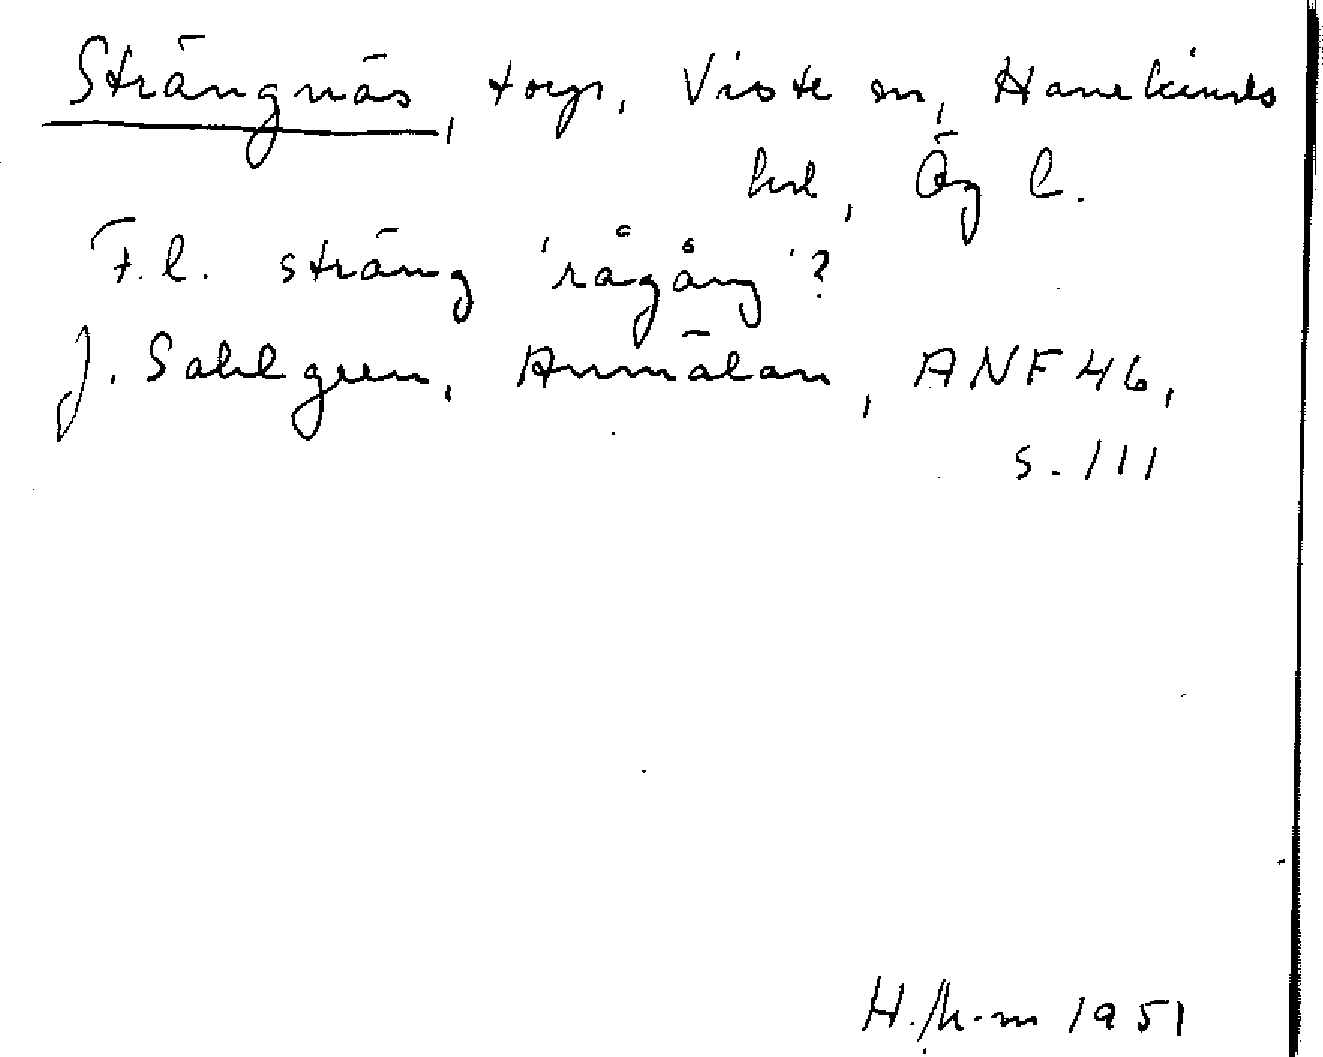 Strängnäs, torp, Viste sn, Hanekinds
hd, Ög l.
F.l. sträng 'rågång'?
J. Sahlgren, Anmälan, ANF 46,
s. 111
1951